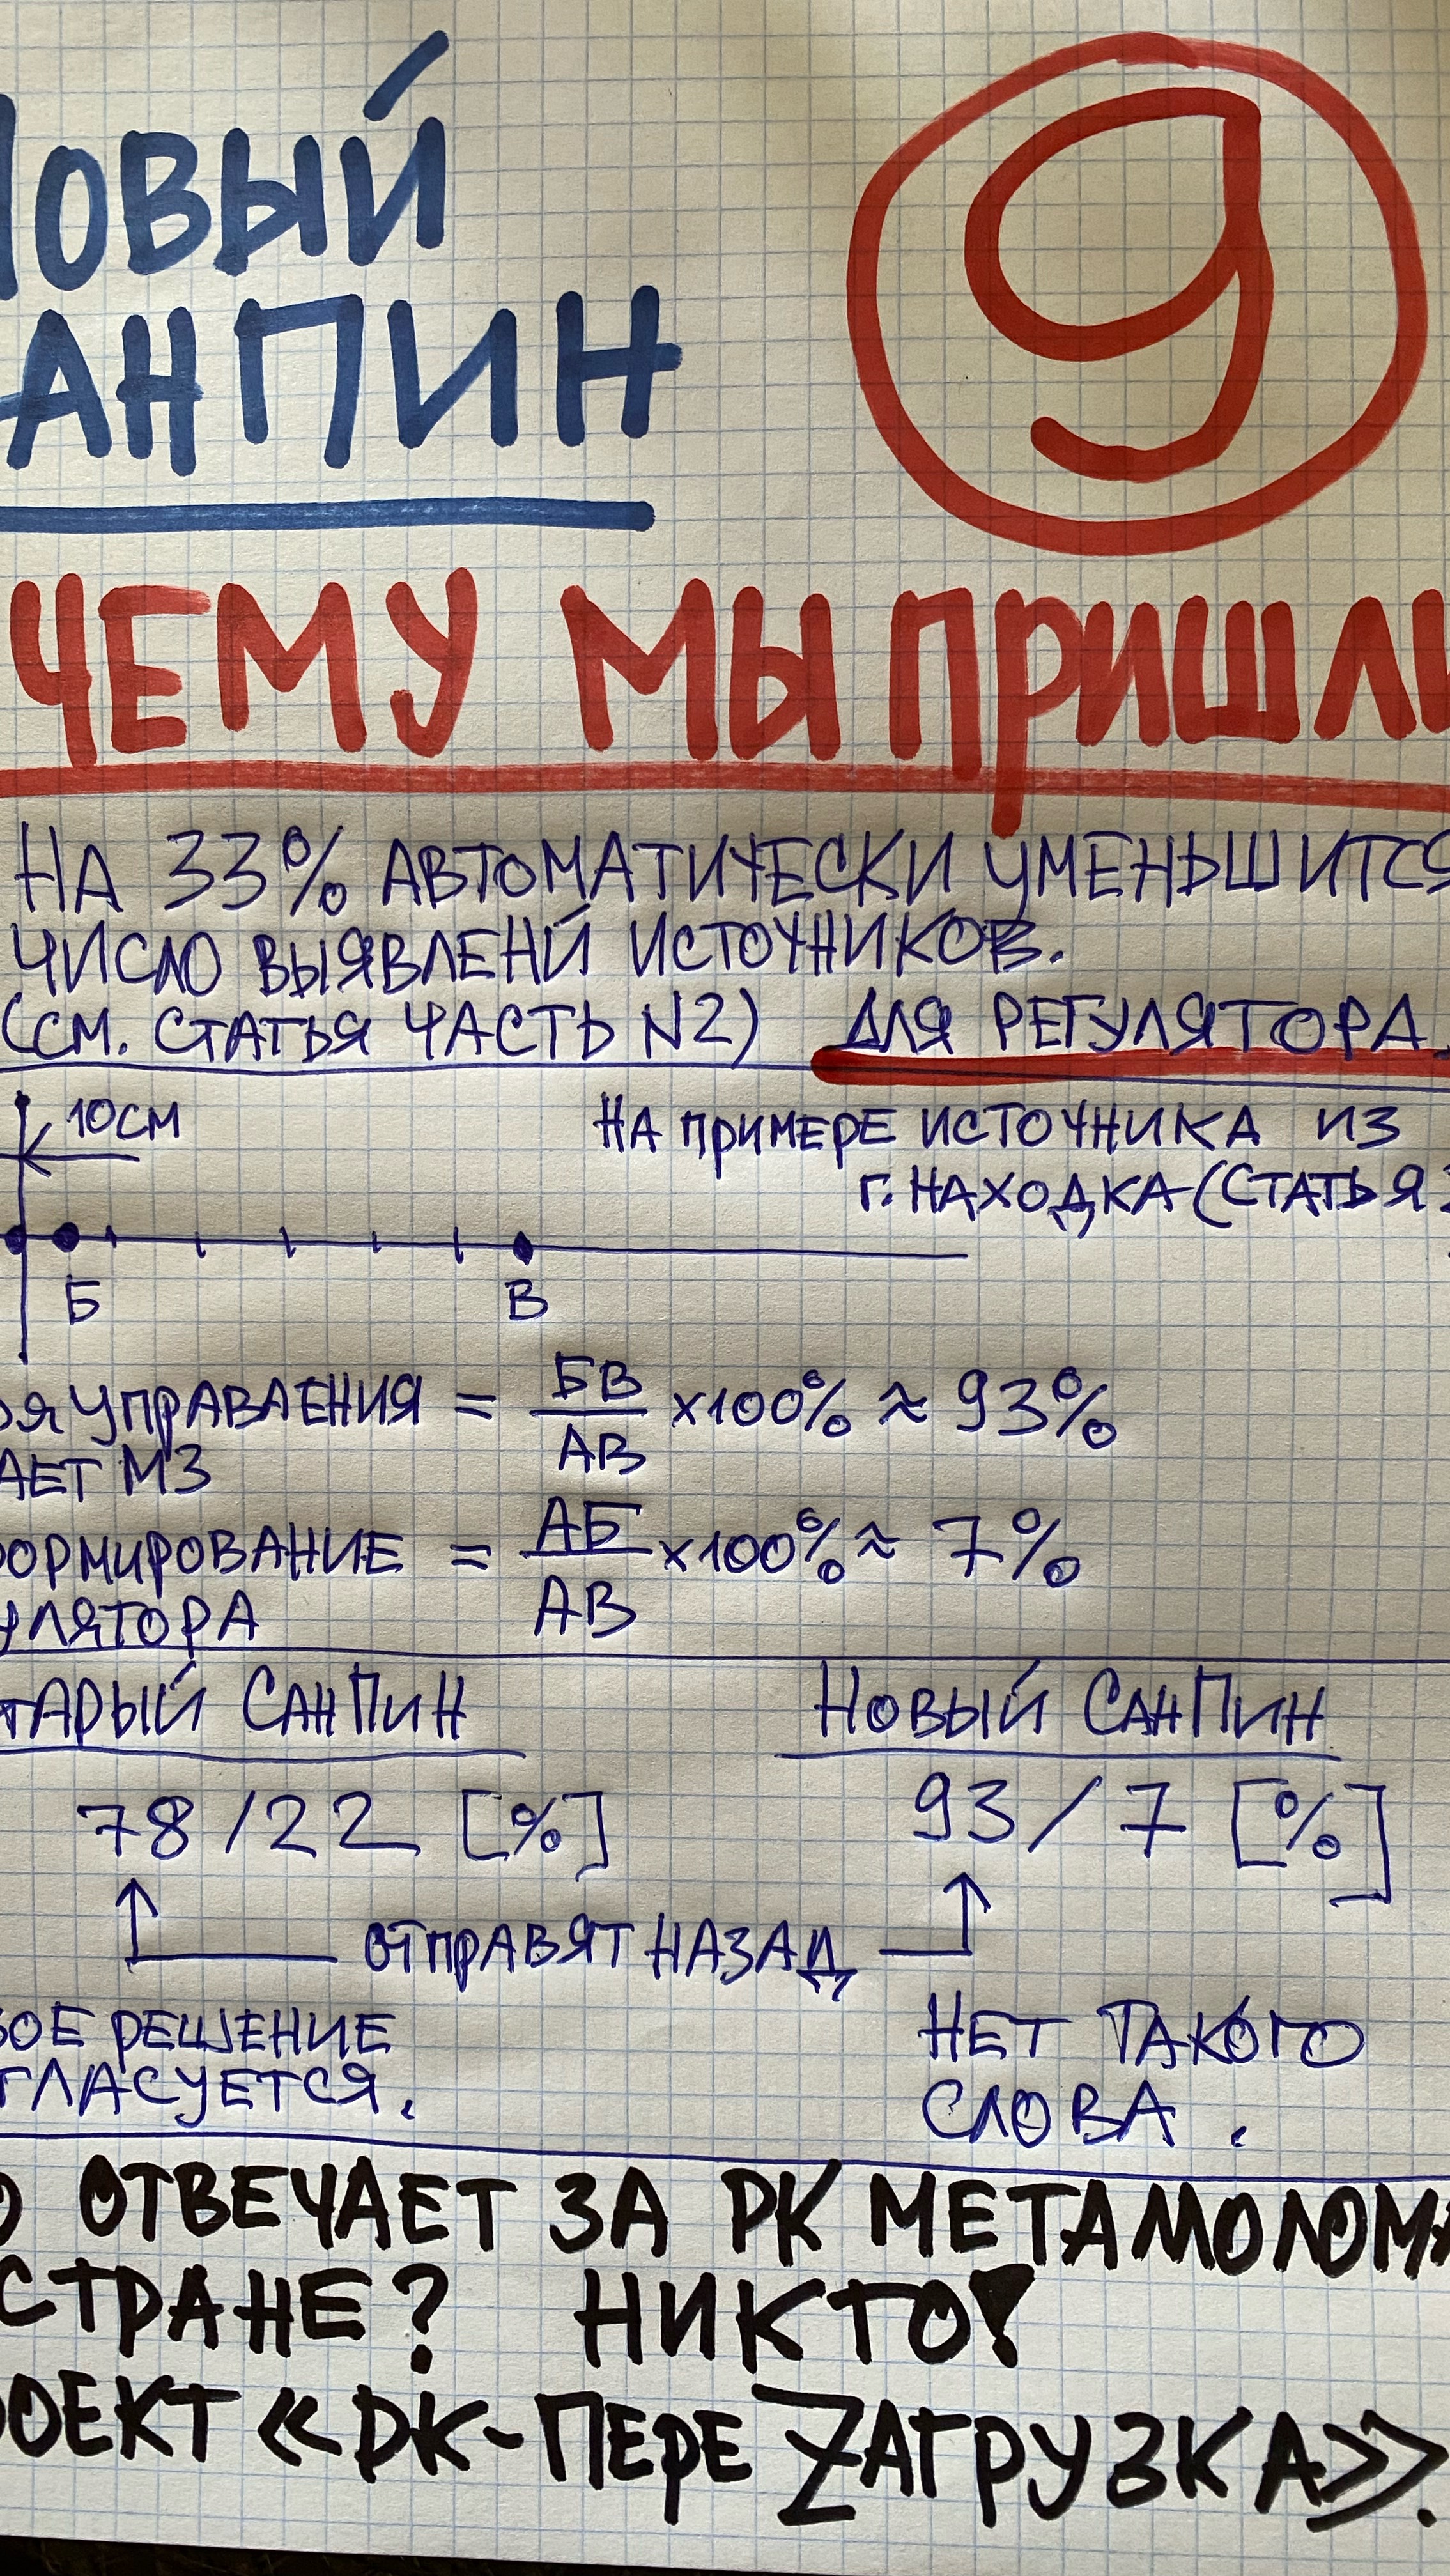 Новый
АНПИН
9
ЧЕМУ МЫ ПРИШЛИ
НА 33% АВТОМАТИЧЕСКИ УМЕНЬШИТСЯ
ЧИСЛО ВЫЯВЛЕНЙ ИСТОЧНИКОВ.
(СМ. СТАТЬЯ ЧАСТЬ N2) ДЛЯ РЕГУЛЯТОРА.
10СМ
НА ПРИМЕРЕ ИСТОЧНИКА ИЗ
Г. НАХОДКА (СТАТЬЯ
Б В
УПРАВЛЕНИЯ = БВ/АВ ×100% ≈ 93%
АЕТ МЗ
ФОРМИРОВАНИЕ = АБ/АВ ×100% ≈ 7%
УЛЯТОРА
ТАРЫЙ САНПИН НОВЫЙ САНПИН
78/22 [%] 93/7 [%]
ОТПРАВЯТ НАЗАД
ОЕ РЕШЕНИЕ
ГЛАСУЕТСЯ.
НЕТ ТАКОГО
СЛОВА.
О ОТВЕЧАЕТ ЗА РК МЕТАМОЛОМ
СТРАНЕ? НИКТО!
ОЕКТ «РК-ПЕРЕZАГРУЗКА».